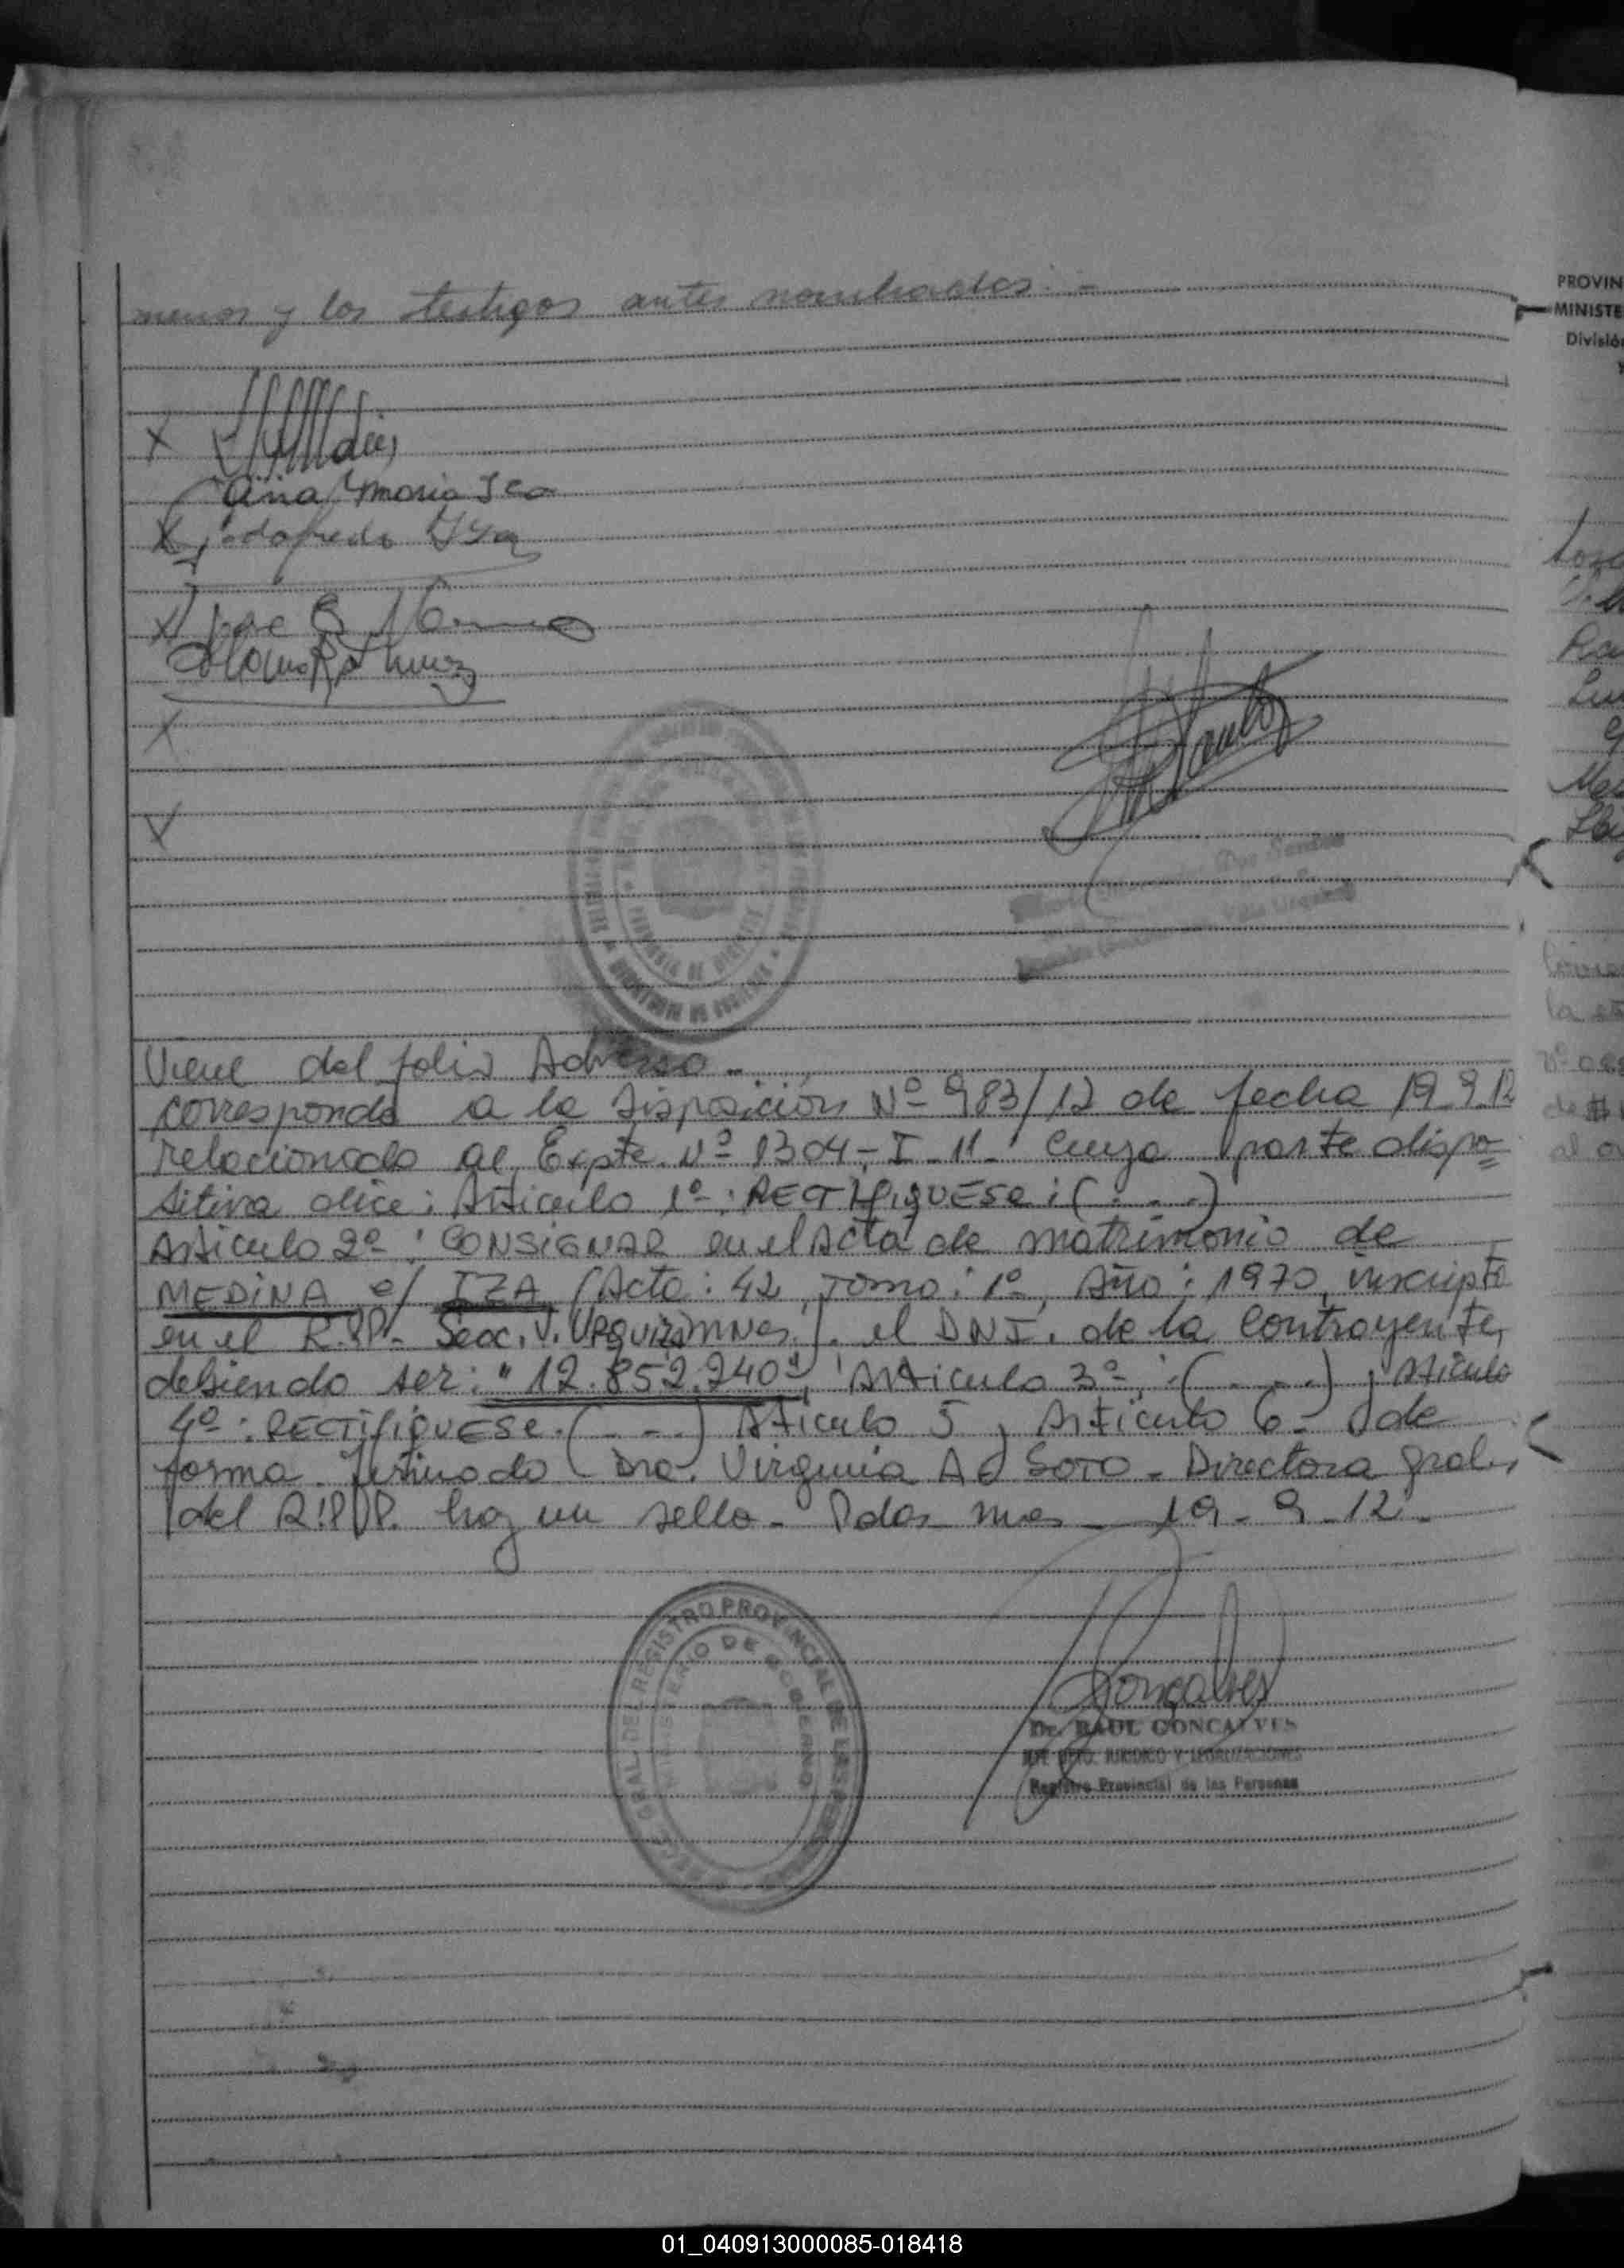 menor y los testigos antes nombrados. -
Ana Maria Iza
Godofredo Iza
Jose
Viene del folio Adverso -
corresponde a la Disposición Nº 983/12 de fecha 19.9.12
relacionado al Expte. Nº 1304 - I - 11 - cuya parte dispo
sitiva dice: Articulo 1º: RECTIFIQUESE: (...)
Articulo 2º: CONSIGNAR en el Acta de matrimonio de
MEDINA c/ IZA (Acta: 42, Tomo: 1º, Año: 1970, inscripto
en el R.P.P. - Secc. V. Urquiza Mnes.). el DNI. de la Contrayente,
debiendo ser: "12.852.240", Articulo 3º: (....), Articulo
4º: RECTIFIQUESE. (...) Articulo 5, Articulo 6 - de
forma. firmado Dra. Virginia A de SOTO - Directora gral.
del R.P.P. hay un sello - Pdas mes - 19 - 9 - 12 -
Goncalves
Dr. RAUL GONCALVES
JEFE DPTO. JURIDICO Y LEGALIZACIONES
Registro Provincial de las Personas
REGISTRO PROVINCIAL DE LAS
MINISTERIO DE GOBIERNO
PROVIN
MINISTE
División
01_040913000085-018418